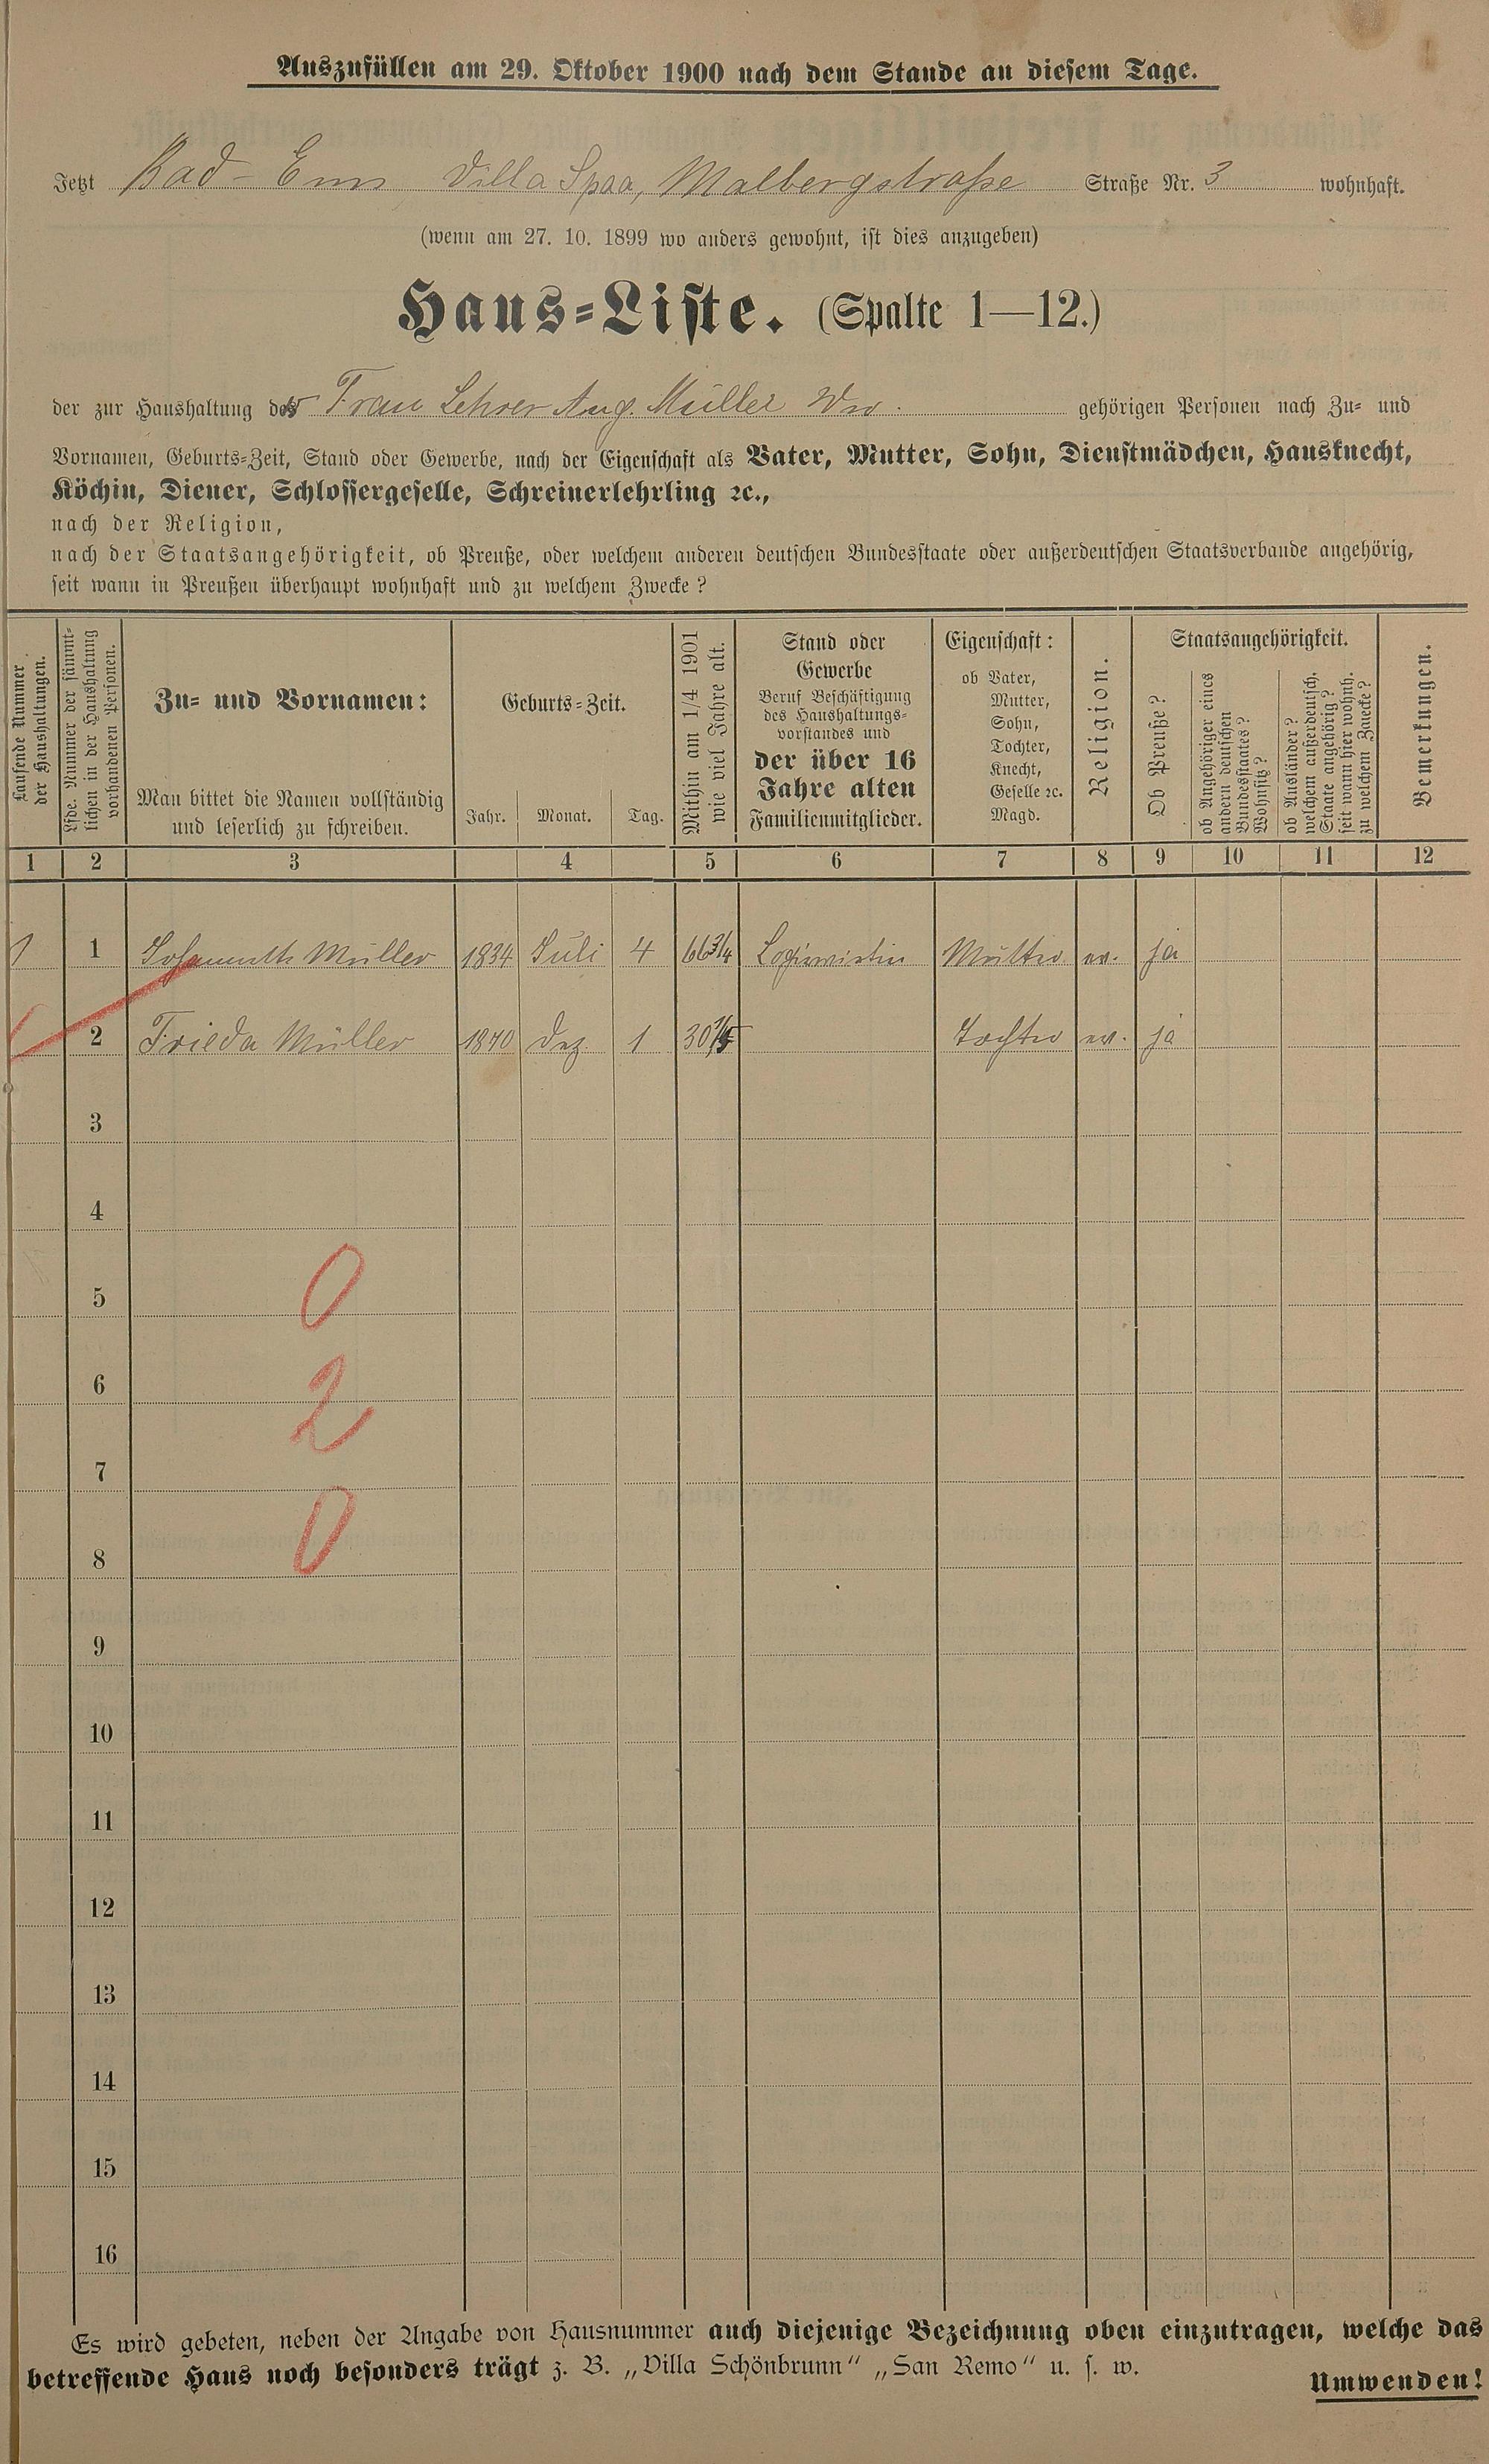 Auszufüllen am 29. Oktober 1900 nach dem Stande an diesem Tage.
Jetzt Bad-Ems Villa Spaa, Malbergstraße Straße Nr. 3 wohnhaft.
(wenn am 27. 10. 1899 wo anders gewohnt, ist dies anzugeben)
Haus-Liste. (Spalte 1—12.)
der zur Haushaltung der Frau Lehrer Aug. Müller Ww. gehörigen Personen nach Zu- und
Vornamen, Geburts-Zeit, Stand oder Gewerbe, nach der Eigenschaft als Vater, Mutter, Sohn, Dienstmädchen, Hausknecht,
Köchin, Diener, Schlossergeselle, Schreinerlehrling ꝛc.,
nach der Religion,
nach der Staatsangehörigkeit, ob Preuße, oder welchem anderen deutschen Bundesstaate oder außerdeutschen Staatsverbande angehörig,
seit wann in Preußen überhaupt wohnhaft und zu welchem Zwecke?
Laufende Nummer
der Haushaltungen.
Lfde. Nummer der sämmt-
lichen in der Haushaltung
vorhandenen Personen.
Zu- und Vornamen:
Man bittet die Namen vollständig
und leserlich zu schreiben.
Geburts-Zeit.
Jahr. Monat. Tag.
Mithin am 1/4 1901
wie viel Jahre alt.
Stand oder
Gewerbe
Beruf Beschäftigung
des Haushaltungs-
vorstandes und
der über 16
Jahre alten
Familienmitglieder.
Eigenschaft:
ob Vater,
Mutter,
Sohn,
Tochter,
Knecht,
Geselle ꝛc.
Magd.
Religion.
Staatsangehörigkeit.
Ob Preuße?
ob Angehöriger eines
andern deutschen
Bundesstaates?
Wohnsitz?
ob Ausländer?
welchem außerdeutsch.
Staate angehörig?
seit wann hier wohnh.
zu welchem Zwecke?
Bemerkungen.
1 2 3 4 5 6 7 8 9 10 11 12
1 1 Müller 1834 Juli 4 66 3/4 Logirwirtin Mutter ev. ja
2 Frieda Müller 1840 Dez. 1 30 Tochter ev. ja
3
4
5
0
6
2
7
0
8
9
10
11
12
13
14
15
16
Es wird gebeten, neben der Angabe von Hausnummer auch diejenige Bezeichnung oben einzutragen, welche das
betreffende Haus noch besonders trägt z. B. „Villa Schönbrunn“ „San Remo“ u. s. w.
Umwenden!